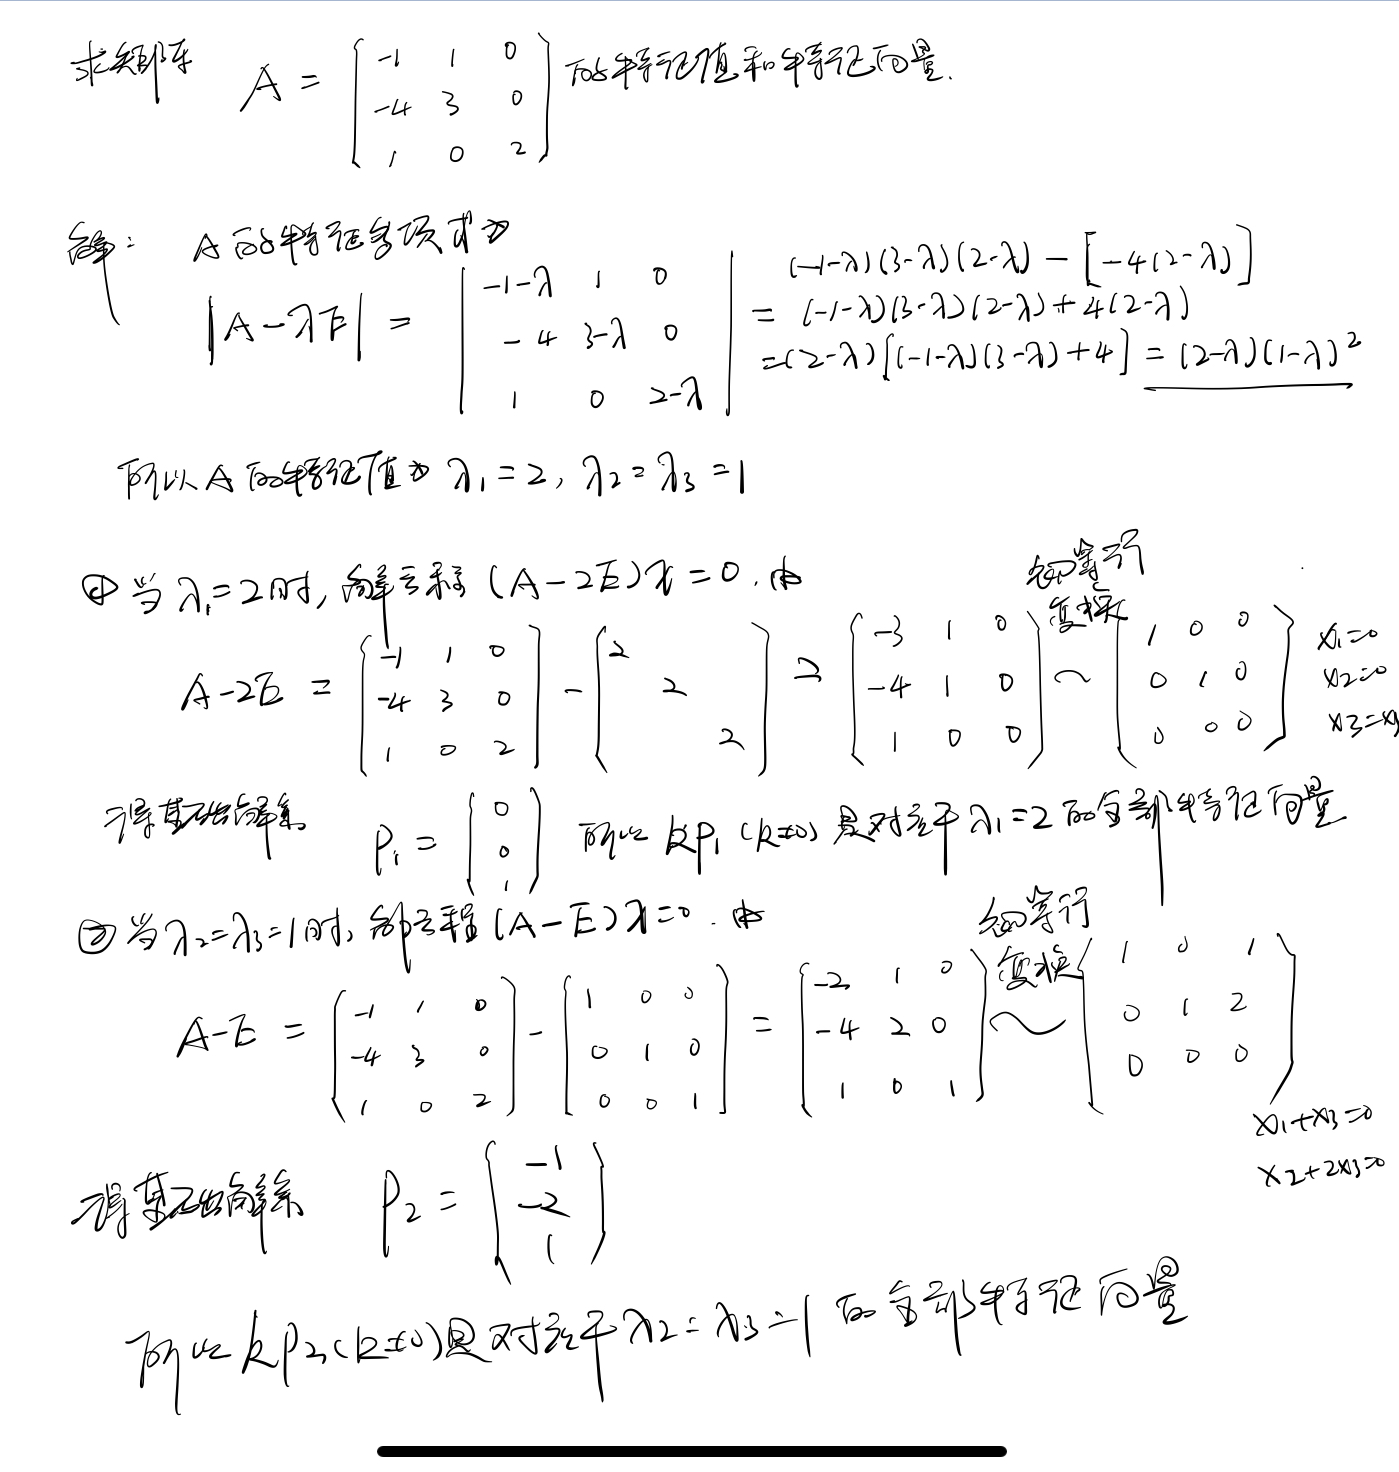 求矩阵 A = [ -1 1 0 ; -4 3 0 ; 1 0 2 ] 的特征值和特征向量.
解: A的特征多项式为
|A-λE| = | -1-λ 1 0 ; -4 3-λ 0 ; 1 0 2-λ |
= (-1-λ)(3-λ)(2-λ) - [-4(2-λ)]
= (-1-λ)(3-λ)(2-λ)+4(2-λ)
=(2-λ)[(-1-λ)(3-λ)+4] = (2-λ)(1-λ)²
所以A的特征值为 λ₁=2, λ₂=λ₃=1
① 当λ₁=2时, 解方程 (A-2E)x=0. 由
A-2E = [ -1 1 0 ; -4 3 0 ; 1 0 2 ] - [ 2 ; 2 ; 2 ] = [ -3 1 0 ; -4 1 0 ; 1 0 0 ] 初等行变换 ~ [ 1 0 0 ; 0 1 0 ; 0 0 0 ]
x₁=0
x₂=0
x₃=x₃
得基础解系 P₁ = [ 0 ; 0 ; 1 ] 所以 kP₁ (k≠0) 是对应于λ₁=2的全部特征向量
② 当λ₂=λ₃=1时, 解方程 (A-E)x=0. 由
A-E = [ -1 1 0 ; -4 3 0 ; 1 0 2 ] - [ 1 0 0 ; 0 1 0 ; 0 0 1 ] = [ -2 1 0 ; -4 2 0 ; 1 0 1 ] 初等行变换 ~ [ 1 0 1 ; 0 1 2 ; 0 0 0 ]
x₁+x₃=0
x₂+2x₃=0
得基础解系 P₂ = [ -1 ; -2 ; 1 ]
所以 kP₂ (k≠0) 是对应于 λ₂=λ₃=1 的全部特征向量